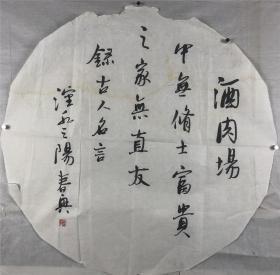 酒肉場
中無脩士富貴
之家無直友
錄古人名言
漢水之陽春典